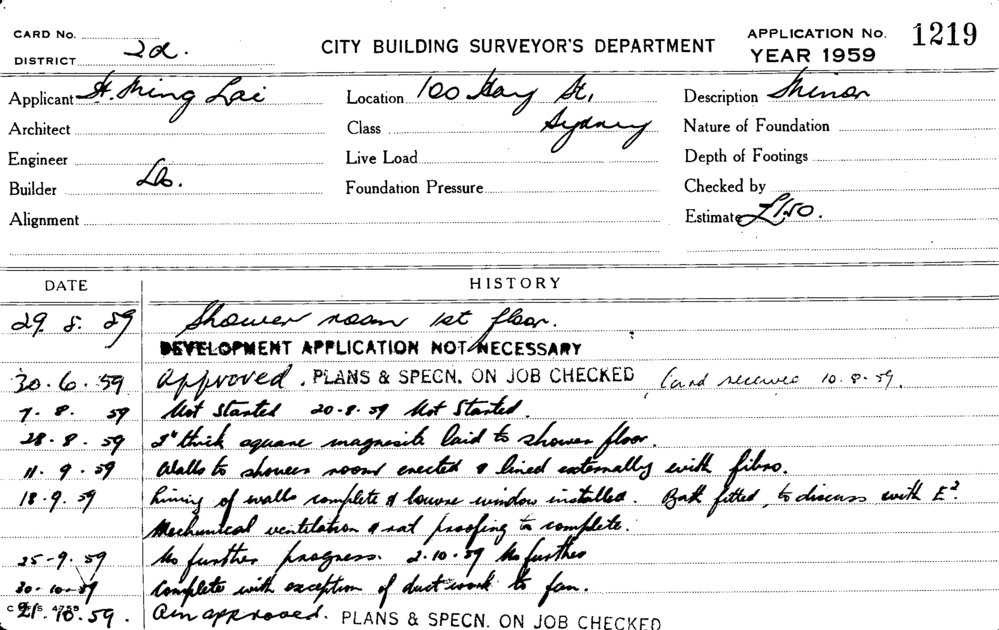 CARD No. 2d.
DISTRICT
CITY BUILDING SURVEYOR'S DEPARTMENT
APPLICATION No. 1219
YEAR 1959
Applicant H. Ming Lai
Location 100 Hay St,
Description Minor
Architect
Class Sydney
Nature of Foundation
Engineer
Live Load
Depth of Footings
Builder Do.
Foundation Pressure
Checked by
Alignment
Estimate £150.
DATE HISTORY
29. 5. 59 Shower room 1st floor.
DEVELOPMENT APPLICATION NOT NECESSARY
30. 6. 59 Approved. PLANS & SPECN. ON JOB CHECKED Card received 10. 8. 59.
7. 8. 59 Not Started 20. 8. 59 Not Started.
28. 8. 59 2" thick square magnesite laid to shower floor.
11. 9. 59 Walls to shower room erected & lined externally with fibro.
18. 9. 59 Lining of walls complete & louvre window installed. Bath fitted, to discuss with E².
Mechanical ventilation & rat proofing to complete.
25-9. 59 No further progress. 2. 10. 59 No further
30. 10. 59 Complete with exception of duct work to fan.
21. 10. 59. approved. PLANS & SPECN. ON JOB CHECKED